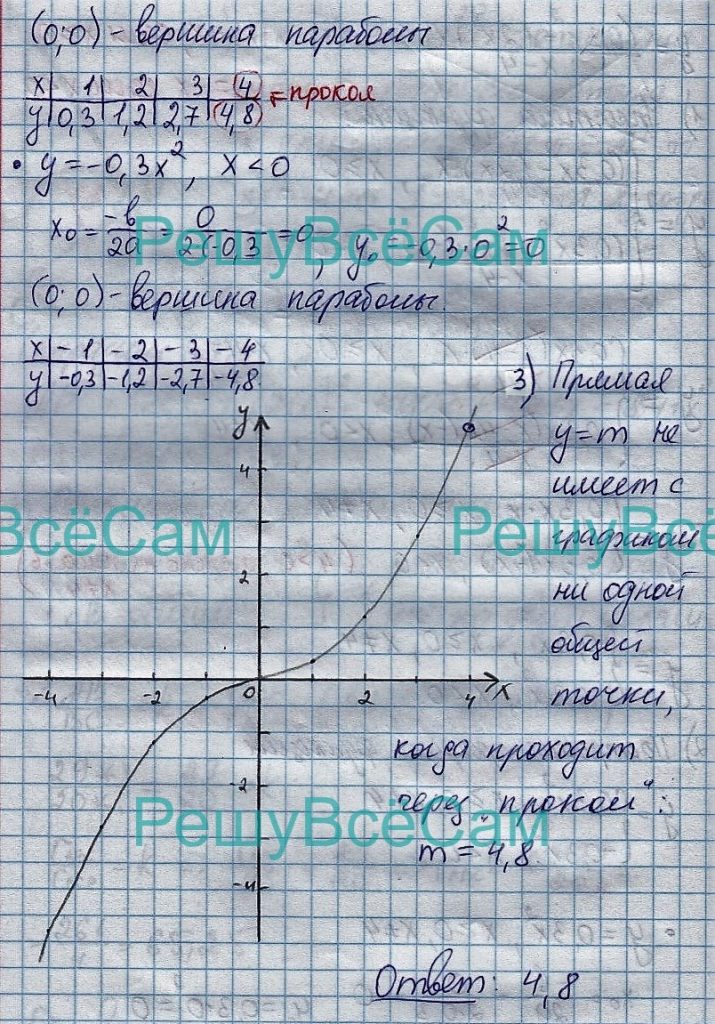 (0;0) - вершина параболы
x | 1 | 2 | 3 | 4
y | 0,3 | 1,2 | 2,7 | (4,8) ← прокол
• y = -0,3x², x < 0
x₀ = -b/2a = 0/2·(-0,3 = 0, y₀ = -0,3·0² = 0
(0;0) - вершина параболы.
x | -1 | -2 | -3 | -4
y | -0,3 | -1,2 | -2,7 | -4,8
3) Прямая
y = m не
имеет с
графиком
ни одной
общей
точки,
когда проходит
через "прокол":
m = 4,8.
Ответ: 4,8
y
4
2
-4
-2
0
2
4
x
-2
-4
РешуВсёСам
ВсёСам
РешуВсё
РешуВсёСам